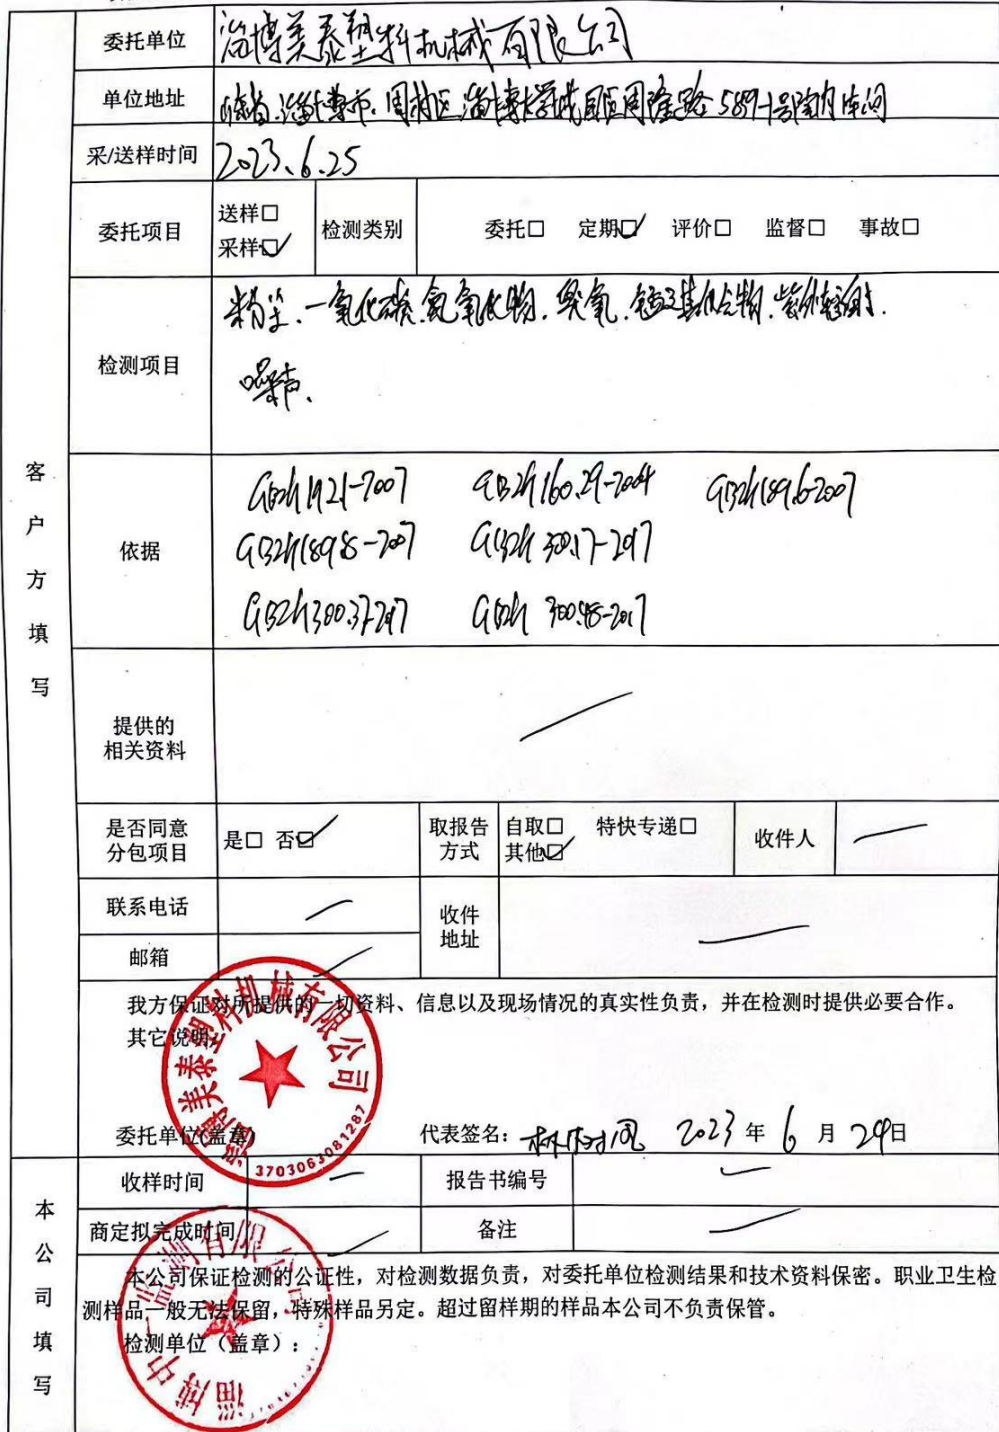 委托单位 淄博美泰塑料机械有限公司
单位地址 山东省淄博市周村区淄博大学城园区周隆路589-1号院内车间
采/送样时间 2023.6.25
委托项目 送样□ 采样☑ 检测类别 委托□ 定期☑ 评价□ 监督□ 事故□
检测项目 粉尘、一氧化碳、氮氧化物、臭氧、锰及其化合物、紫外辐射、
噪声、
客户方填写
依据 GBZ/T192.1-2007 GBZ/T160.29-2004 GBZ/T189.6-2007
GBZ/T189.8-2007 GBZ/T300.17-2017
GBZ/T300.37-2017 GBZ/T 300.48-2017
提供的
相关资料
是否同意
分包项目 是□ 否☑ 取报告
方式 自取□ 特快专递□
其他☑ 收件人
联系电话 收件
地址
邮箱
我方保证对所提供的一切资料、信息以及现场情况的真实性负责，并在检测时提供必要合作。
其它说明：
淄博美泰塑料机械有限公司
3703063081287
委托单位(盖章) 代表签名： 2023 年 6 月 29日
本公司填写
收样时间 报告书编号
商定拟完成时间 备注
本公司保证检测的公证性，对检测数据负责，对委托单位检测结果和技术资料保密。职业卫生检
测样品一般无法保留，特殊样品另定。超过留样期的样品本公司不负责保管。
检测单位（盖章）：
淄博中一监测有限公司